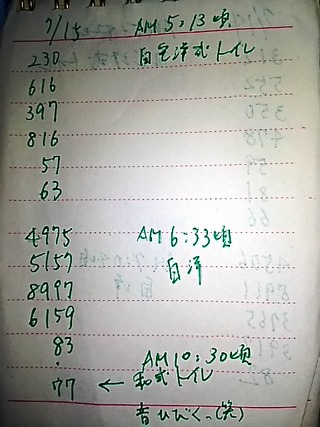 7/15 AM 5:13頃
230 自宅洋式トイレ
616
397
816
57
63
4975 AM 6:33頃
5157 自洋
8997
6159
83
AM10:30頃
77 ← 和式トイレ
音ひびくっ(笑)